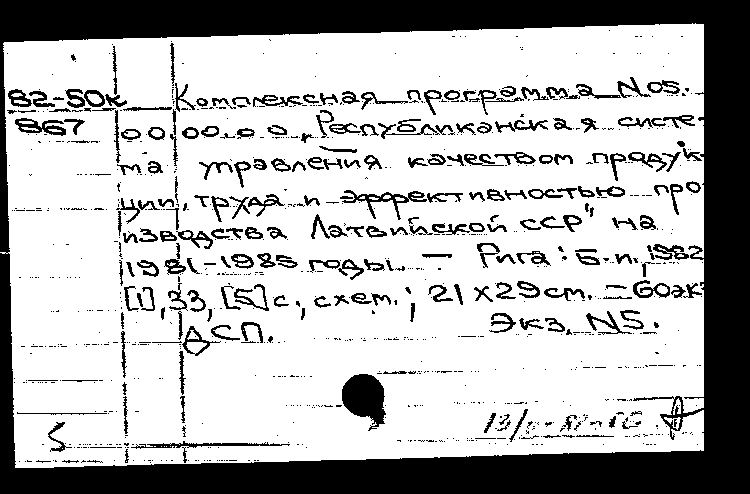 82-50к Комплексная программа N 05.
867 00.00.00 „Республиканская систе-
ма управления качеством продук-
ции, труда и эффективностью про-
изводства Латвийской ССР" на
1981-1985 годы. — Рига: Б.и., 1982
[1], 33, [5] с., схем.; 21 х 29 см. — 60 экз
ДСП. Экз. N 5.